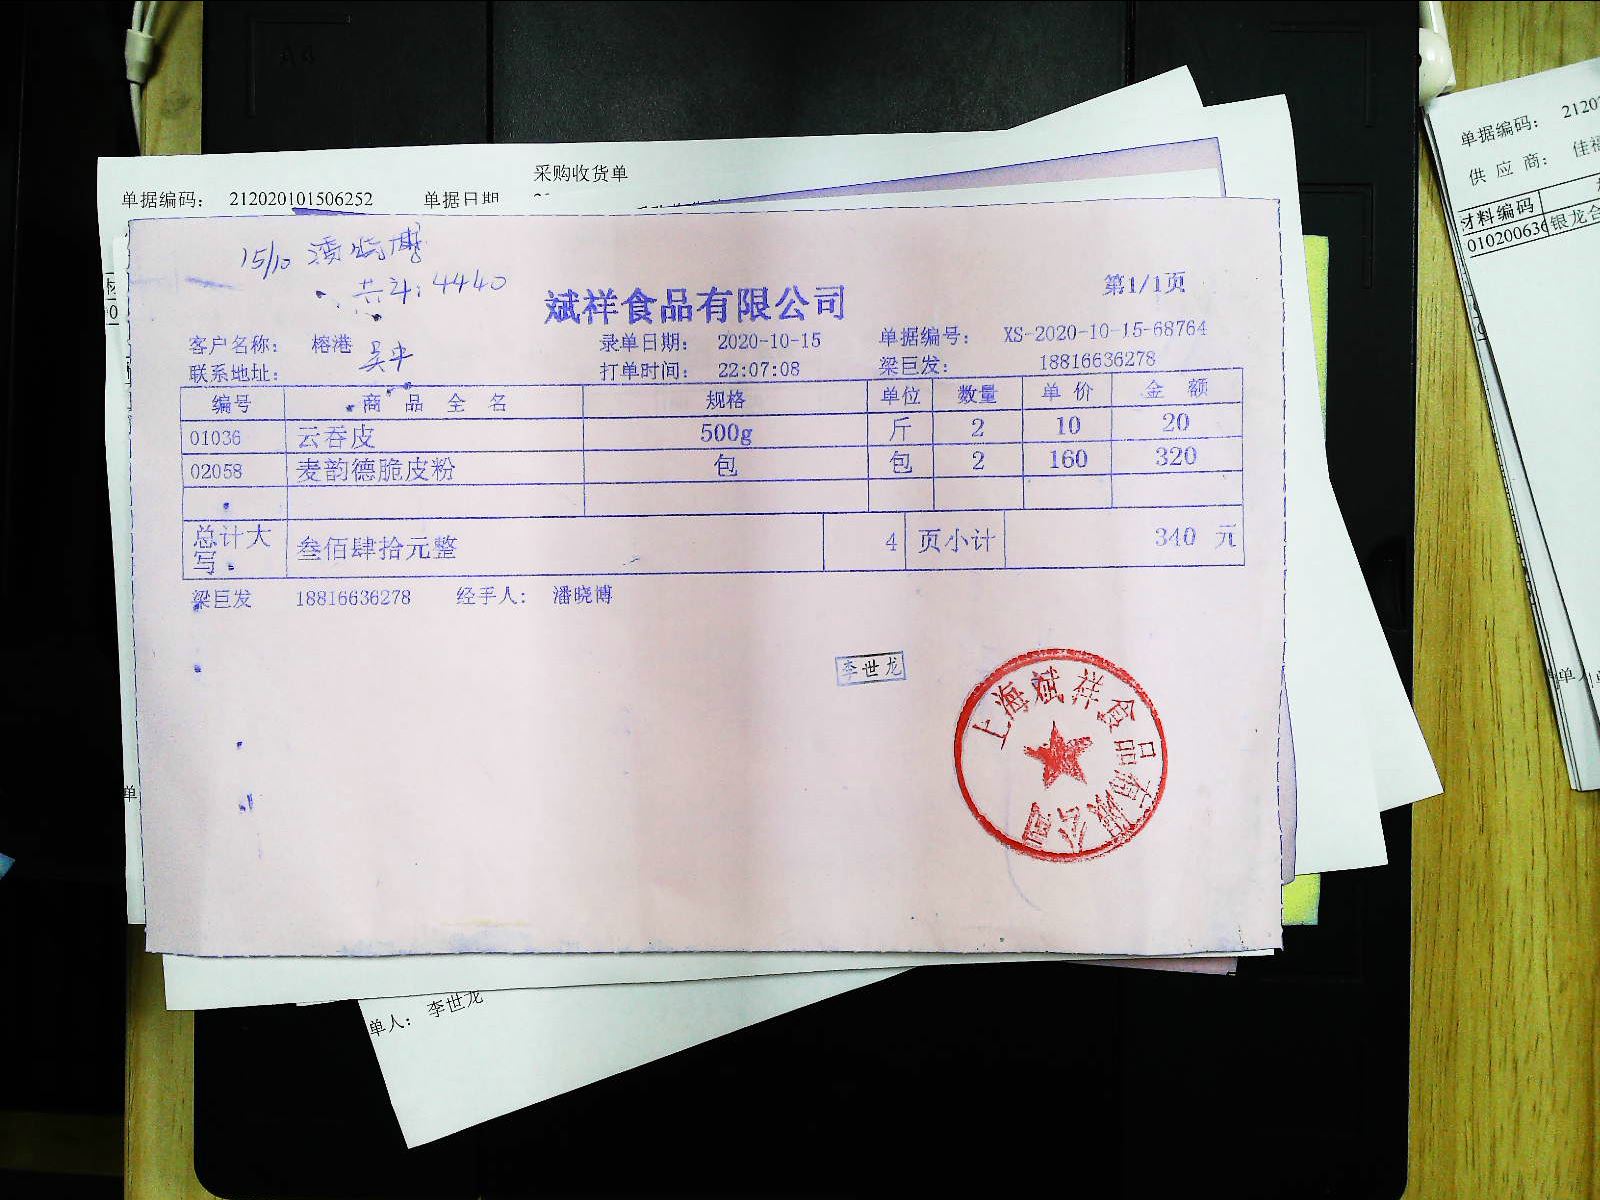 采购收货单
单据编码： 212020101506252 单据日期
单据编码： 2120
供 应 商： 佳福
材料编码
010200636 银龙
15/10 潘晓博
共4: 4440
斌祥食品有限公司
第1/1页
客户名称： 榕港 录单日期： 2020-10-15 单据编号： XS-2020-10-15-68764
联系地址： 打单时间： 22:07:08 梁巨发： 18816636278
编号 商 品 全 名 规格 单位 数量 单 价 金 额
01036 云吞皮 500g 斤 2 10 20
02058 麦韵德脆皮粉 包 包 2 160 320
总计大写 叁佰肆拾元整 4 页小计 340 元
梁巨发 18816636278 经手人： 潘晓博
李世龙
上海斌祥食品有限公司
单人： 李世龙